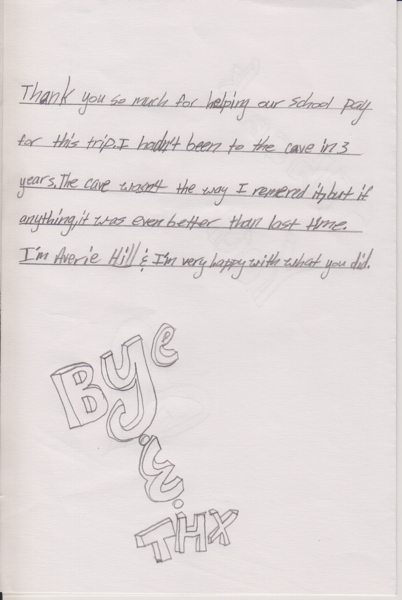 Thank you so much for helping our school pay
for this trip. I hadn't been to the cave in 3
years. The cave wasn't the way I remered it, but if
anything, it was even better than last time.
I'm Averie Hill & I'm very happy with what you did.
Bye
&
THX